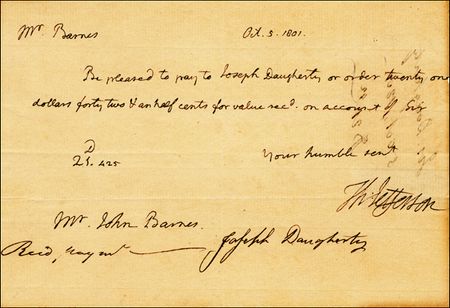 Mr. Barnes
Oct. 5. 1801.
Be pleased to pay to Joseph Daugherty or order twenty one
dollars forty two & an half cents for value recd. on account of Sir
Your humble servt
D
21.425
Th Jefferson
Mr. John Barnes.
Recd, paymt
Joseph Daugherty